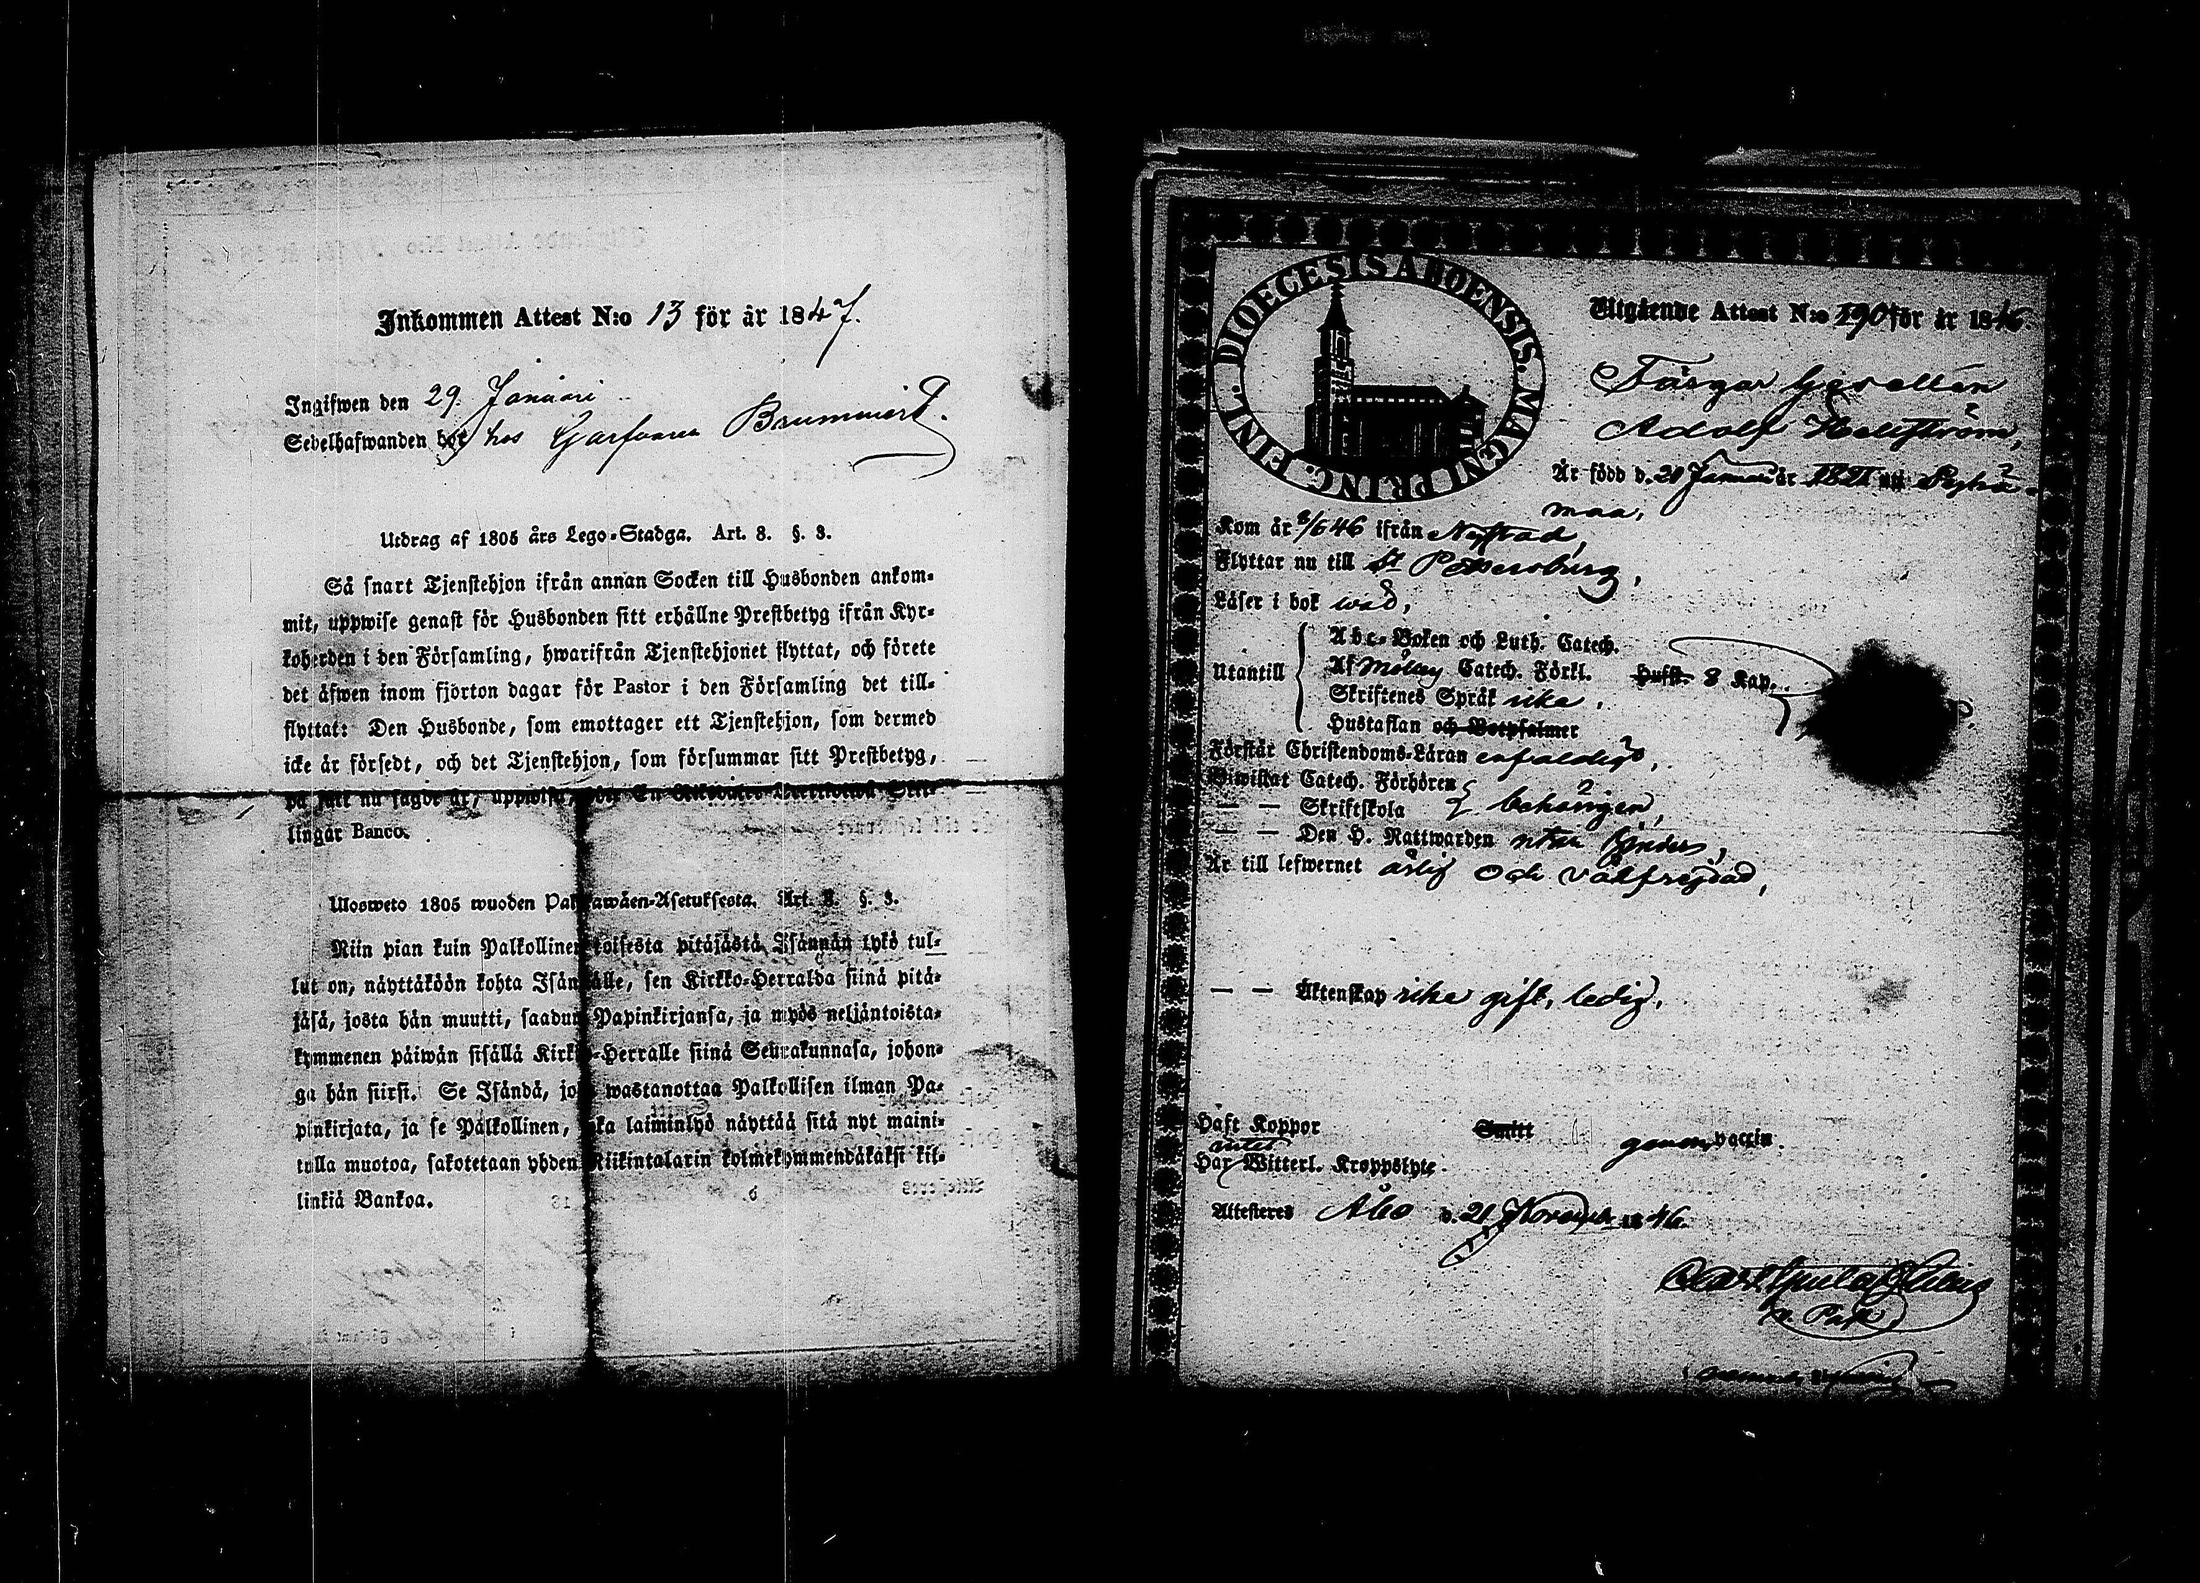 Inkommen Attest N:o 13 för år 1847.
Ingifwen den 29 Januari
Sedelhafwanden bor hos Garfvaren Brummert.
Utdrag af 1805 års Lego-Stadga. Art. 8. §. 3.
Så snart Tjenstehjon ifrån annan Socken till Husbonden ankom-
mit, uppwise genast för Husbonden sitt erhållne Prestbetyg ifrån Kyr-
koherden i den Församling, hwarifrån Tjenstehjonet flyttat, och förete
det äfwen inom fjorton dagar för Pastor i den Församling det till-
flyttat: Den Husbonde, som emottager ett Tjenstehjon, som dermed
icke är försedt, och det Tjenstehjon, som försummar sitt Prestbetyg,
på sätt nu sagdt är, uppwisa, En
lingar Banco.
Ulosweto 1805 wuoden Palkkawäen-Asetuksesta. Art. 8. §. 3.
Niin pian kuin Palkollinen toisesta pitäjästä Isännän tykö tul-
lut on, näyttäköön kohta Isännälle, sen Kirkko-Herralda siinä pitä-
jäsä, josta hän muutti, saadun Papinkirjansa, ja myös neljäntoista-
kymmenen päiwän sisällä Kirkko-Herralle siinä Seurakunnasa, johon-
ga hän siirsi. Se Isändä, joka wastanottaa Palkollisen ilman Pa-
pinkirjata, ja se Palkollinen, joka laiminlyö näyttää sitä nyt maini-
tulla muotoa, sakotetaan yhden Riikintalarin kolmekymmendäkaksi kil-
linkiä Bankoa.
DIOECESIS ABOENSIS. MAGNI PRINC. FINL.
Utgående Attest N:o 190 för år 1846.
Färgar Gesellen
Adolf Hellström,
Är född d. 21 Januari år 1821 uti Pyhä-
maa,
Kom år 8/6 46 ifrån Nystad,
Flyttar nu till St Petersburg,
Läser i bok wäl,
Utantill
Abc-Boken och Luth. Catech.
Af Catech. Förkl. Husst. 8 Kap.
Skriftenes Språk icke,
Hustaflan och Botpsalmer
Förstår Christendoms-Läran enfaldigt,
Biwistat Catech. Förhören
— — Skriftskola behörigen,
— — Den H. Nattwarden
Är till lefwernet ärlig och välfrejdad,
— — Äktenskap icke gift, ledig.
Haft Koppor Smitt genom vaccin.
Har intet Witterl. Kroppslyte.
Attesteras Åbo d. 21 Novemb. 1846.